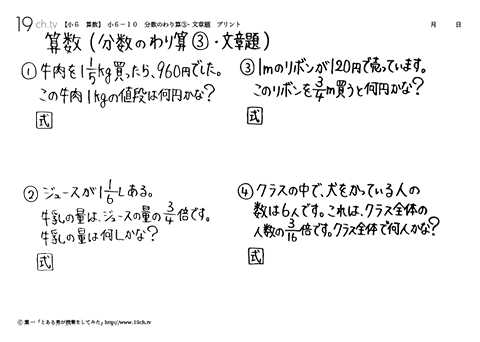 19ch.tv 【小6 算数】 小6-10 分数のわり算③・文章題 プリント 月 日
算数(分数のわり算③・文章題)
①牛肉を1 1/5 kg買ったら、960円でした。
この牛肉1kgの値段は何円かな?
式
②ジュースが1 1/6 Lある。
牛乳の量は、ジュースの量の3/4倍です。
牛乳の量は何Lかな?
式
③1mのリボンが120円で売っています。
このリボンを3/4m買うと何円かな?
式
④クラスの中で、犬をかっている人の
数は6人です。これは、クラス全体の
人数の3/16倍です。クラス全体で何人かな?
式
©葉一「とある男が授業をしてみた」http://www.19ch.tv